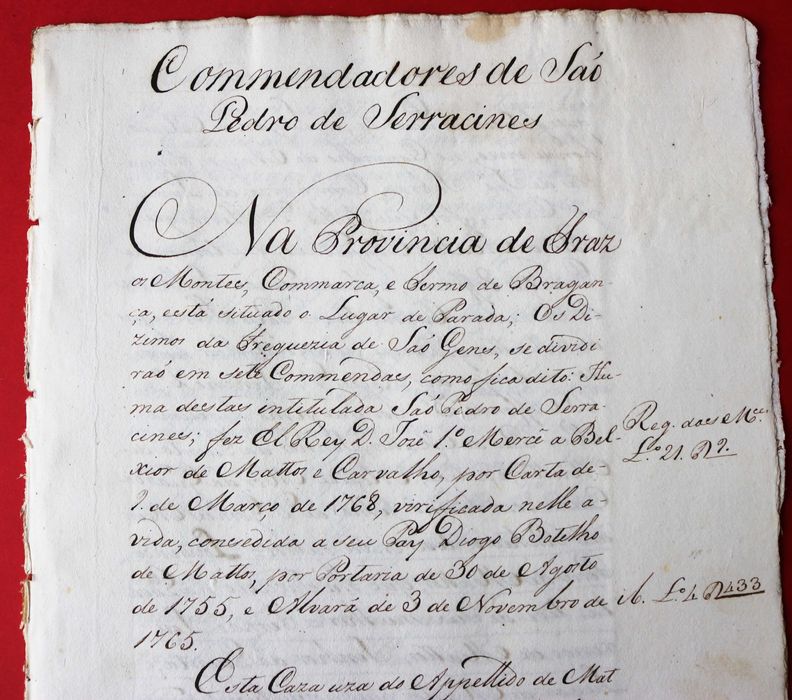 Commendadores de Saõ
Pedro de Serracines
Na Provincia de Traz
os Montes, Commarca, e Termo de Bragan-
ça, está situado o Lugar de Parada; Os Di-
zimos da Freguezia de Saõ Genes, se dividi
raõ em sete Commendas, como fica dito: Hu-
ma destas intitulada Saõ Pedro de Serra-
cines, fez El Rey D. José 1.º Mercê a Bel-
xior de Mattos e Carvalho, por Carta de
Reg. das M.ces
L.º 21. 
de Março de 1768, virificada nelle a
vida, concedida a seu Pay Diogo Botelho
de Mattos, por Portaria de 30 de Agosto
de 1755, e Alvará de 3 de Novembro de
ib. L.º 4 433
1765.
Esta Caza uza do Appellido de Mat